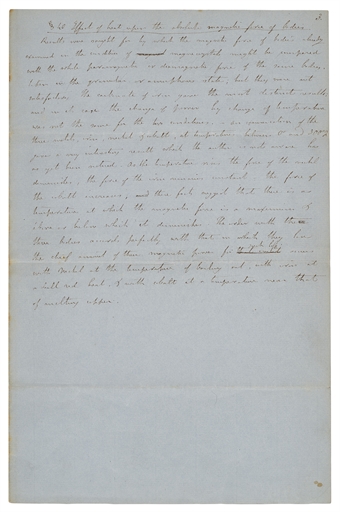 3
Effect of heat upon the absolute magnetic force of bodies
Results were sought for by which the magnetic force of bodies
in the condition of magnecrystals might be compared
with the whole paramagnetic or diamagnetic force of the same bodies
taken in the granular or amorphous state, but they were not
satisfactory. The of iron gave the most distinct results
and in it the change of power by change of temperature
was not the same for the two conditions. An examination of the
three metals, iron, nickel & cobalt, at temperatures between 0° and 300°
gave a very interesting result which the author is not aware has
as yet been noticed. As the temperature rose the force of the nickel
diminished, the force of the iron remained constant & the force of
the cobalt increased, and this fact suggests that there is a
temperature at which the magnetic force is a maximum &
above or below which it diminishes. The order with the
three bodies accords perfectly with that in which they lose
the chief amount of their magnetic power for
with nickel at the temperature of boiling oil, with iron at
a dull red heat, & with cobalt at a temperature near that
of melting copper.